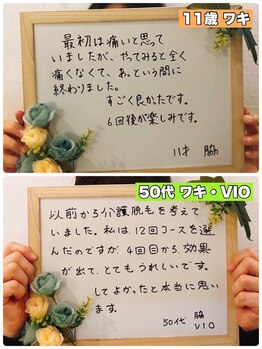 11歳 ワキ
最初は痛いと思って
いましたが、やってみると全く
痛くなくて、あっという間に
終わりました。
すごく良かたです。
6回後が楽しみです。
11才 脇
50代 ワキ・VIO
以前から介護脱毛を考えて
いました。私は、12回コースを選
んだのですが、4回目から効果
が出て、とてもうれしいです。
してよかったと本当に思い
ます。
50代 脇
VIO